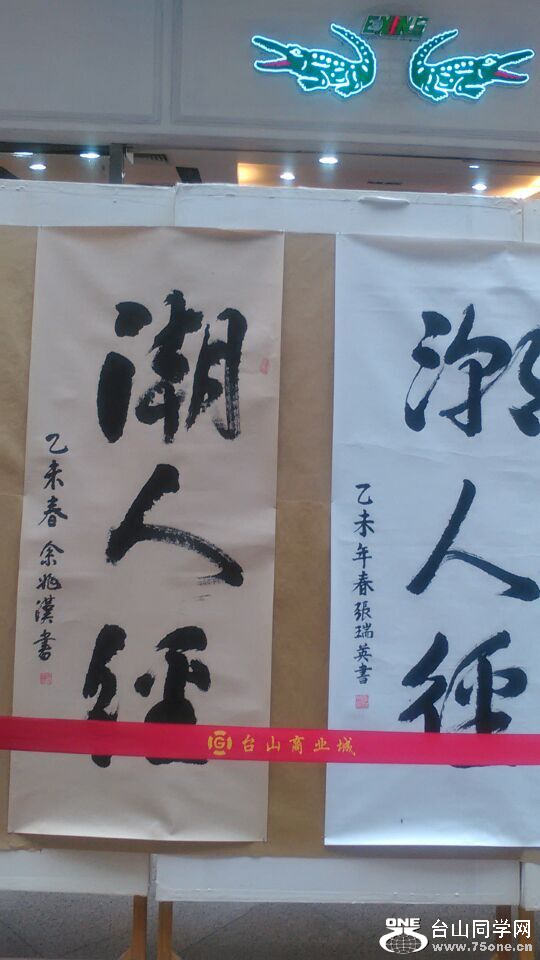 潮人徑
乙未春 余兆漢書
潮人徑
乙未年春張瑞英書
台山商业城
ONE
台山同学网
www.75one.cn